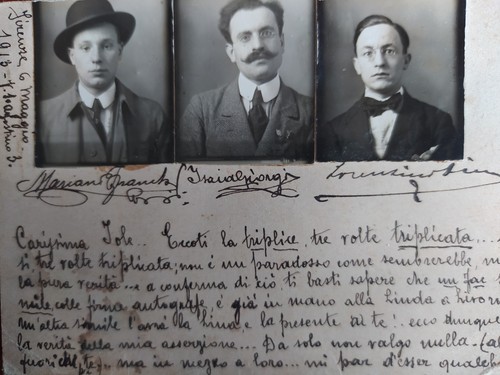 Firenze, 6 Maggio
1913 -
Mariano
Isaia Giorgi
Lorenzino
Carissima Iole.. Eccoti la triplice, tre volte triplicata....
si tre volte triplicata; non è un paradosso come sembrerebbe, m
la pura verità... a conferma di ciò ti basti sapere che un fac si
mile colle firma autografe, è già in mano alla Linda a
un'altra simile l'avrà la Lina e la presente a te!.. ecco dunque
la verità della mia asserzione... Da solo non valgo nulla - (al
te)... ma in mezzo a loro... mi par d'esser qualche